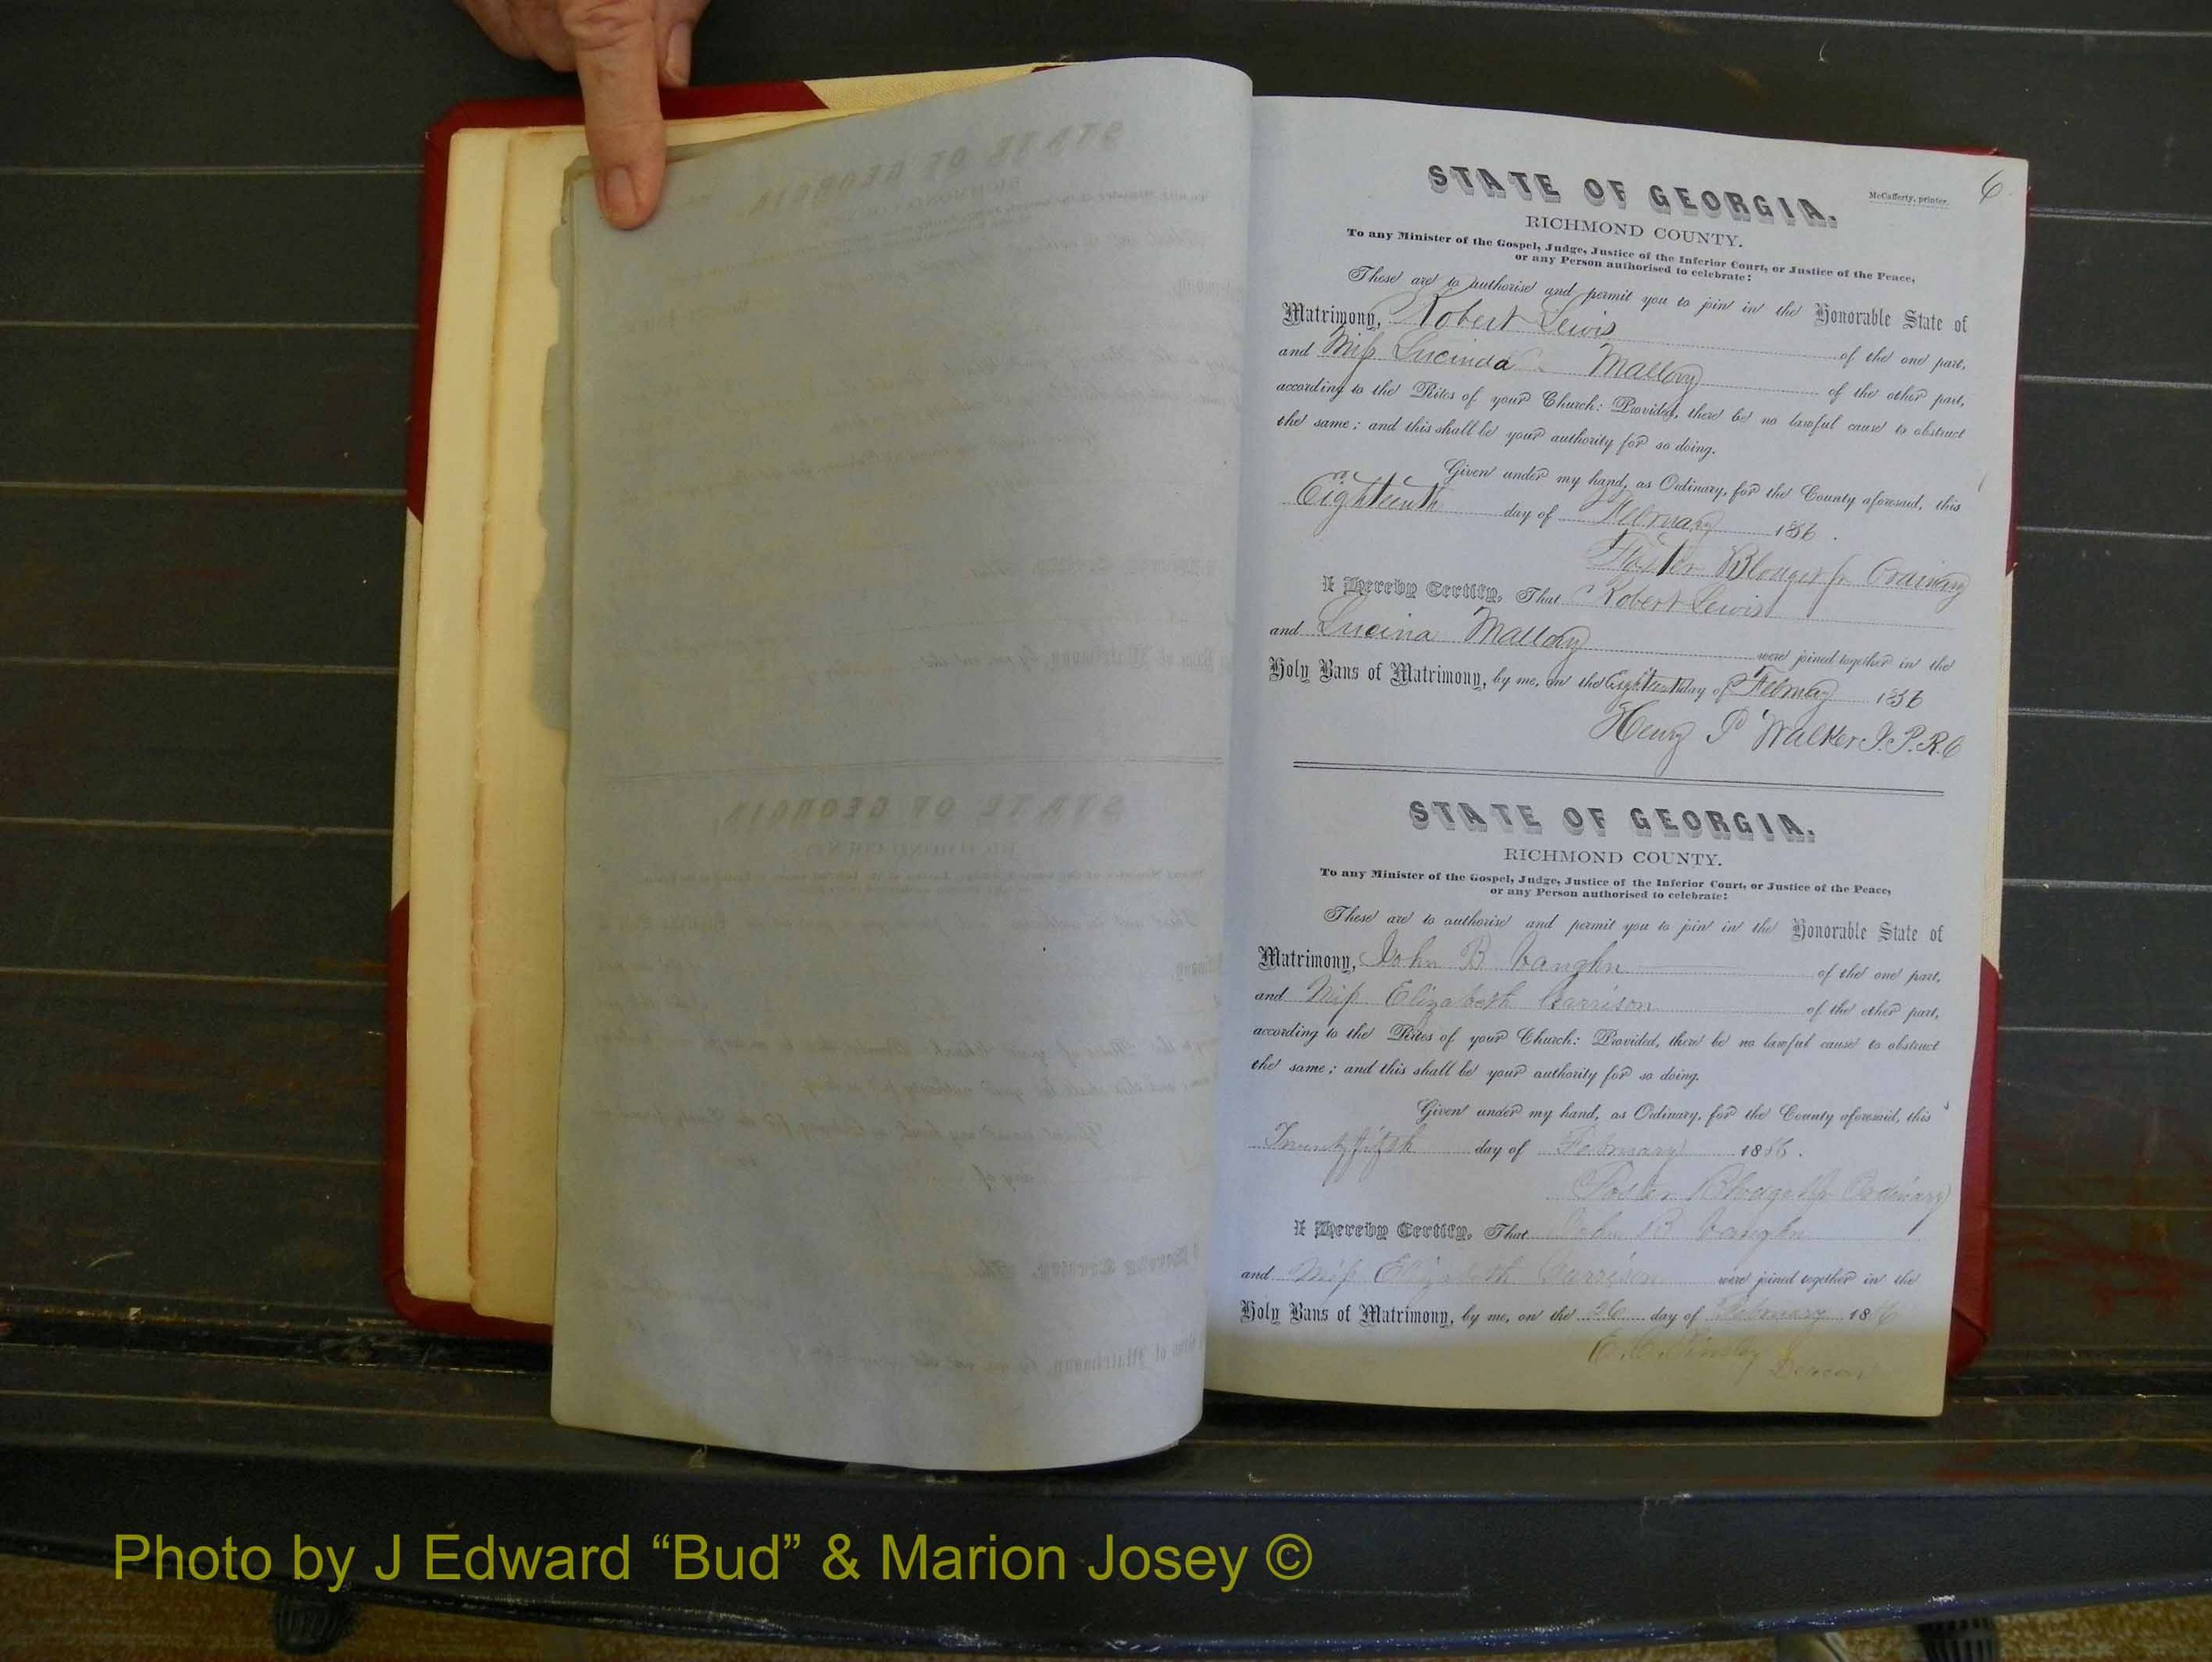 6
STATE OF GEORGIA.
McCafferty, printer.
RICHMOND COUNTY.
To any Minister of the Gospel, Judge, Justice of the Inferior Court, or Justice of the Peace,
or any Person authorised to celebrate:
These are to authorise and permit you to join in the Honorable State of
Matrimony, Robert Lewis of the one part,
and Miss Lucinda Mallory of the other part,
according to the Rites of your Church: Provided, there be no lawful cause to obstruct
the same; and this shall be your authority for so doing.
Given under my hand, as Ordinary, for the County aforesaid, this
Eighteenth day of February 1856.
Foster Blodget Jr Ordinary
I Hereby Certify, That Robert Lewis
and Lucina Mallory were joined together in the
Holy Bans of Matrimony, by me, on the Eighteenth day of February 1856
Henry P Walker J.P.R.C
STATE OF GEORGIA.
RICHMOND COUNTY.
To any Minister of the Gospel, Judge, Justice of the Inferior Court, or Justice of the Peace,
or any Person authorised to celebrate:
These are to authorise and permit you to join in the Honorable State of
Matrimony, John B Vaughn of the one part,
and Miss Elizabeth Garrison of the other part,
according to the Rites of your Church: Provided, there be no lawful cause to obstruct
the same; and this shall be your authority for so doing.
Given under my hand, as Ordinary, for the County aforesaid, this
Twenty fifth day of February 1856.
Foster Blodget Jr Ordinary
I Hereby Certify, That John B Vaughn
and Miss Elizabeth Garrison were joined together in the
Holy Bans of Matrimony, by me, on the 26 day of February 1856
Tinsley
Deacon
Photo by J Edward “Bud” & Marion Josey ©